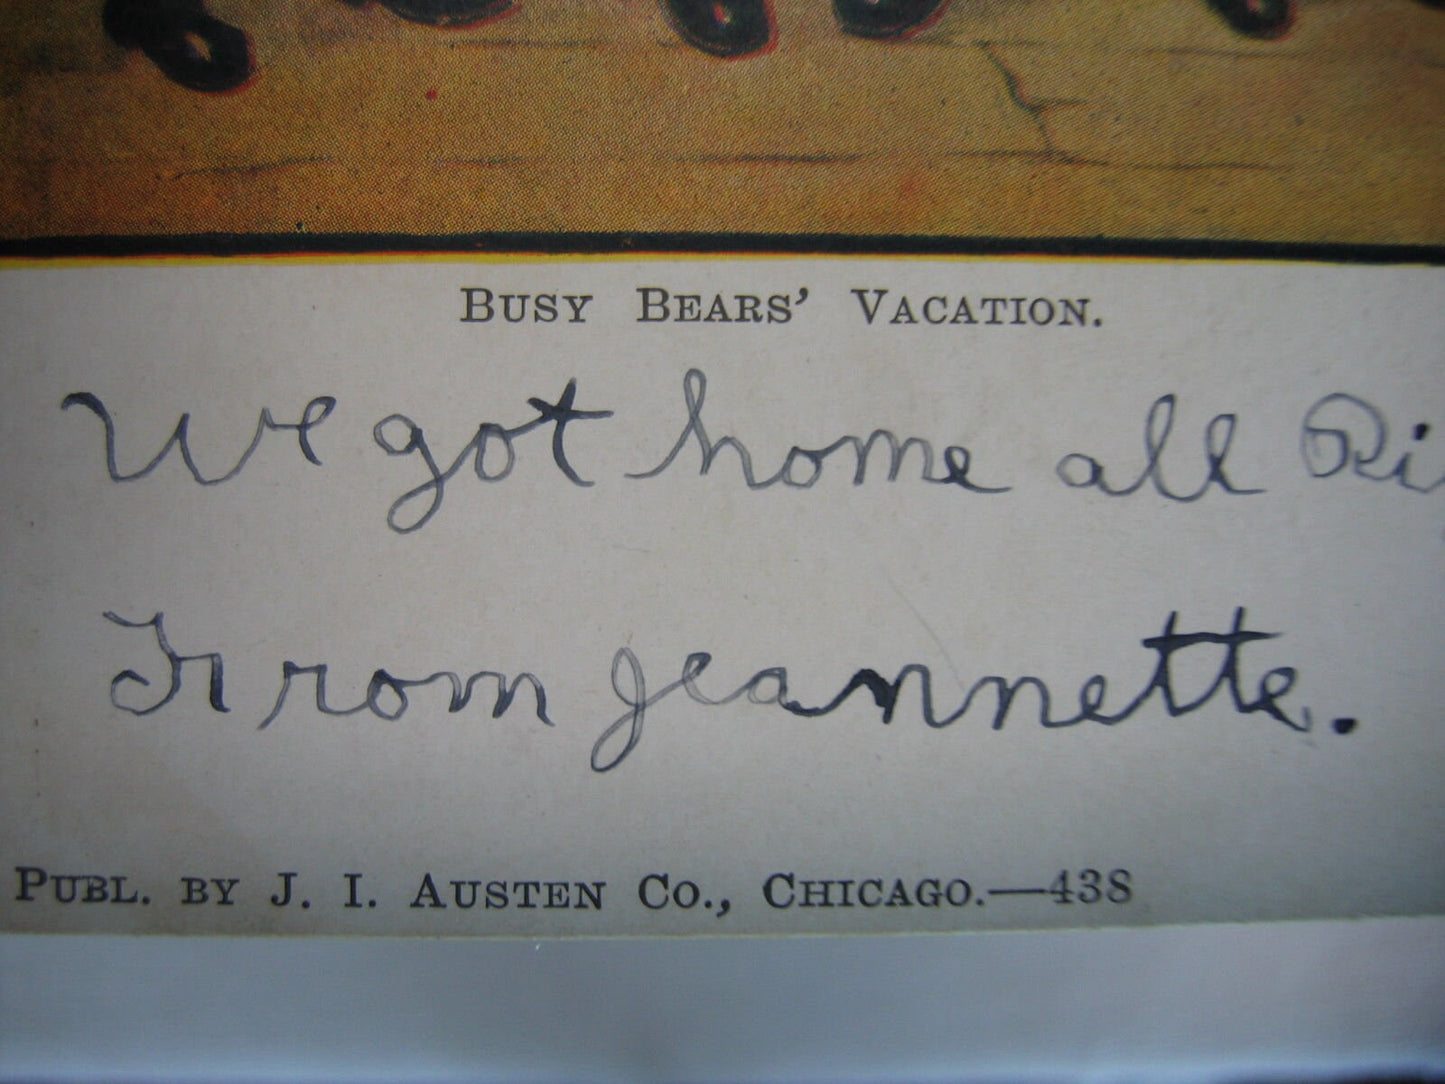 BUSY BEARS' VACATION.
We got home all Ri
From Jeannette.
PUBL. BY J. I. AUSTEN CO., CHICAGO.—438